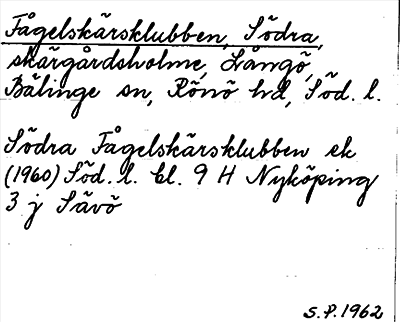 Fågelskärsklubben, Södra,
skärgårdsholme, Långö,
Bälinge sn, Rönö hd, Söd. l.
Södra Fågelskärsklubben ek
(1960) Söd. l. bl. 9 H Nyköping
3 j Sävö
S.P. 1962